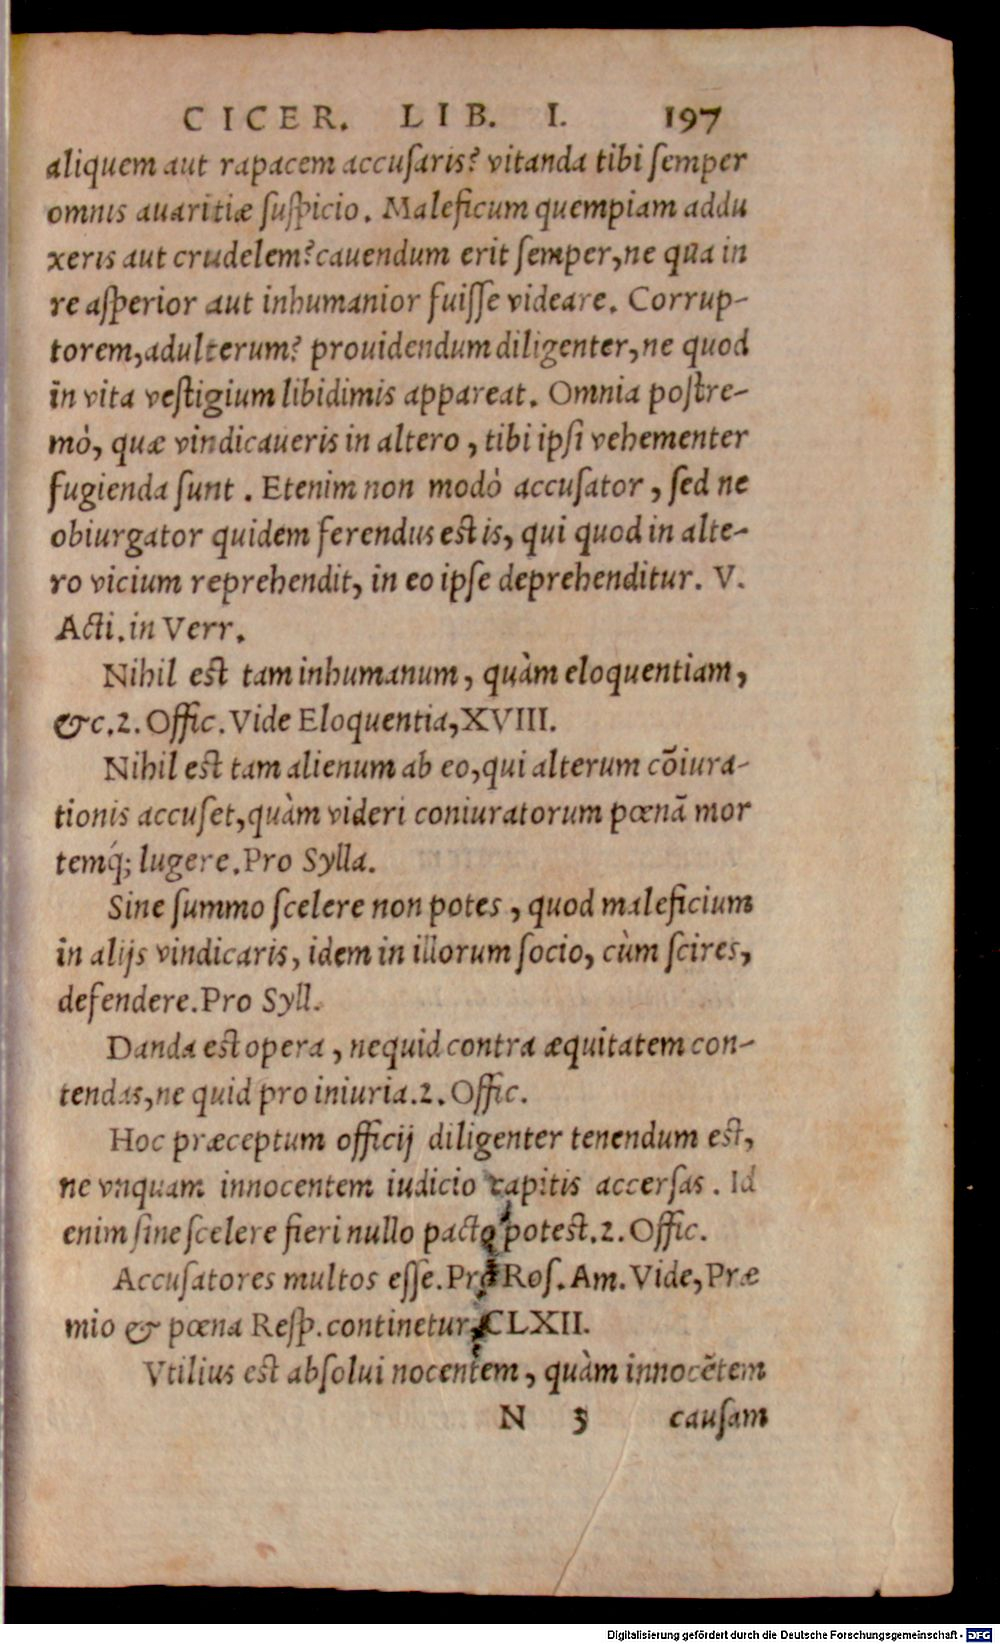 CICER. LIB. I. 197
aliquem aut rapacem accusaris? vitanda tibi semper
omnis auaritiæ suspicio. Maleficum quempiam addu
xeris aut crudelem? cauendum erit semper, ne qua in
re asperior aut inhumanior fuisse videare. Corrup-
torem, adulterum? prouidendum diligenter, ne quod
in vita vestigium libidimis appareat. Omnia postre-
mò, quæ vindicaueris in altero, tibi ipsi vehementer
fugienda sunt. Etenim non modò accusator, sed ne
obiurgator quidem ferendus est is, qui quod in alte-
ro vicium reprehendit, in eo ipse deprehenditur. V.
Acti. in Verr.
Nihil est tam inhumanum, quàm eloquentiam,
&c. 2. Offic. Vide Eloquentia, XVIII.
Nihil est tam alienum ab eo, qui alterum cõiura-
tionis accuset, quàm videri coniuratorum pœnã mor
temq́; lugere. Pro Sylla.
Sine summo scelere non potes, quod maleficium
in alijs vindicaris, idem in illorum socio, cùm scires,
defendere. Pro Syll.
Danda est opera, nequid contra æquitatem con-
tendas, ne quid pro iniuria. 2. Offic.
Hoc præceptum officij diligenter tenendum est,
ne vnquam innocentem iudicio capitis accersas. Id
enim sine scelere fieri nullo pacto potest. 2. Offic.
Accusatores multos esse. Pro Ros. Am. Vide, Præ
mio & pœna Resp. continetur, CLXII.
Vtilius est absolui nocentem, quàm innocẽtem
N 3 causam
Digitalisierung gefördert durch die Deutsche Forschungsgemeinschaft - DFG